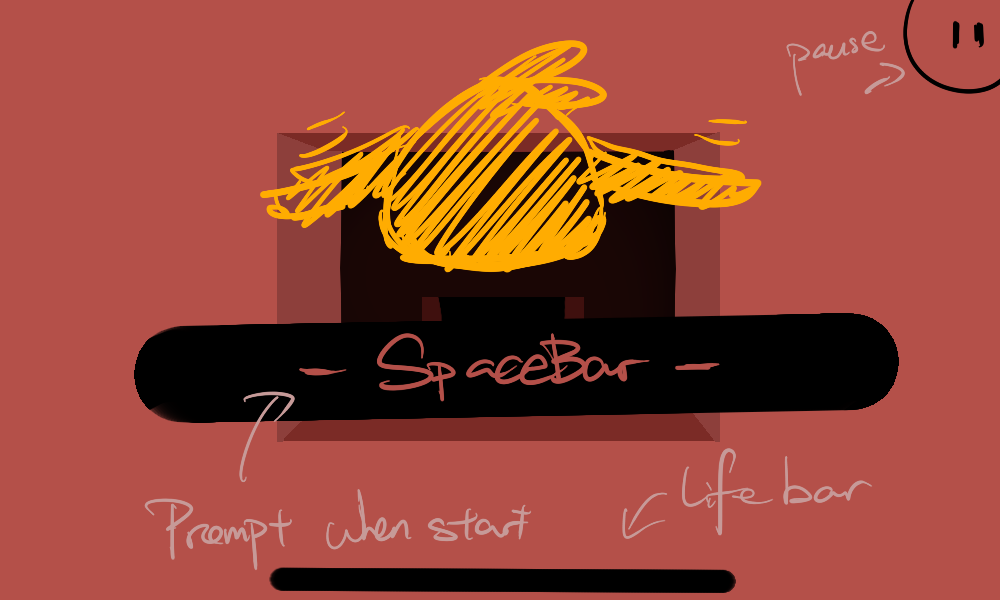 pause
- SpaceBar -
Prompt when start
Life bar